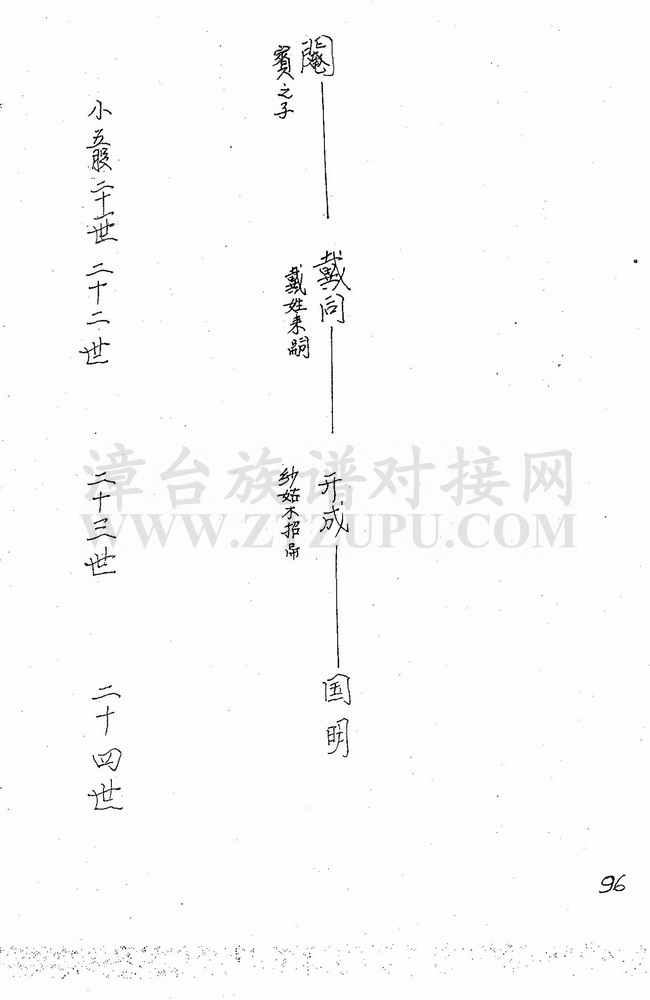 閹
賓之子
戴同
戴姓来嗣
开成
纱姑木招吊
国明
小五股二十一世 二十二世
二十三世
二十四世
漳台族谱对接网
WWW.ZTZUPU.COM
96